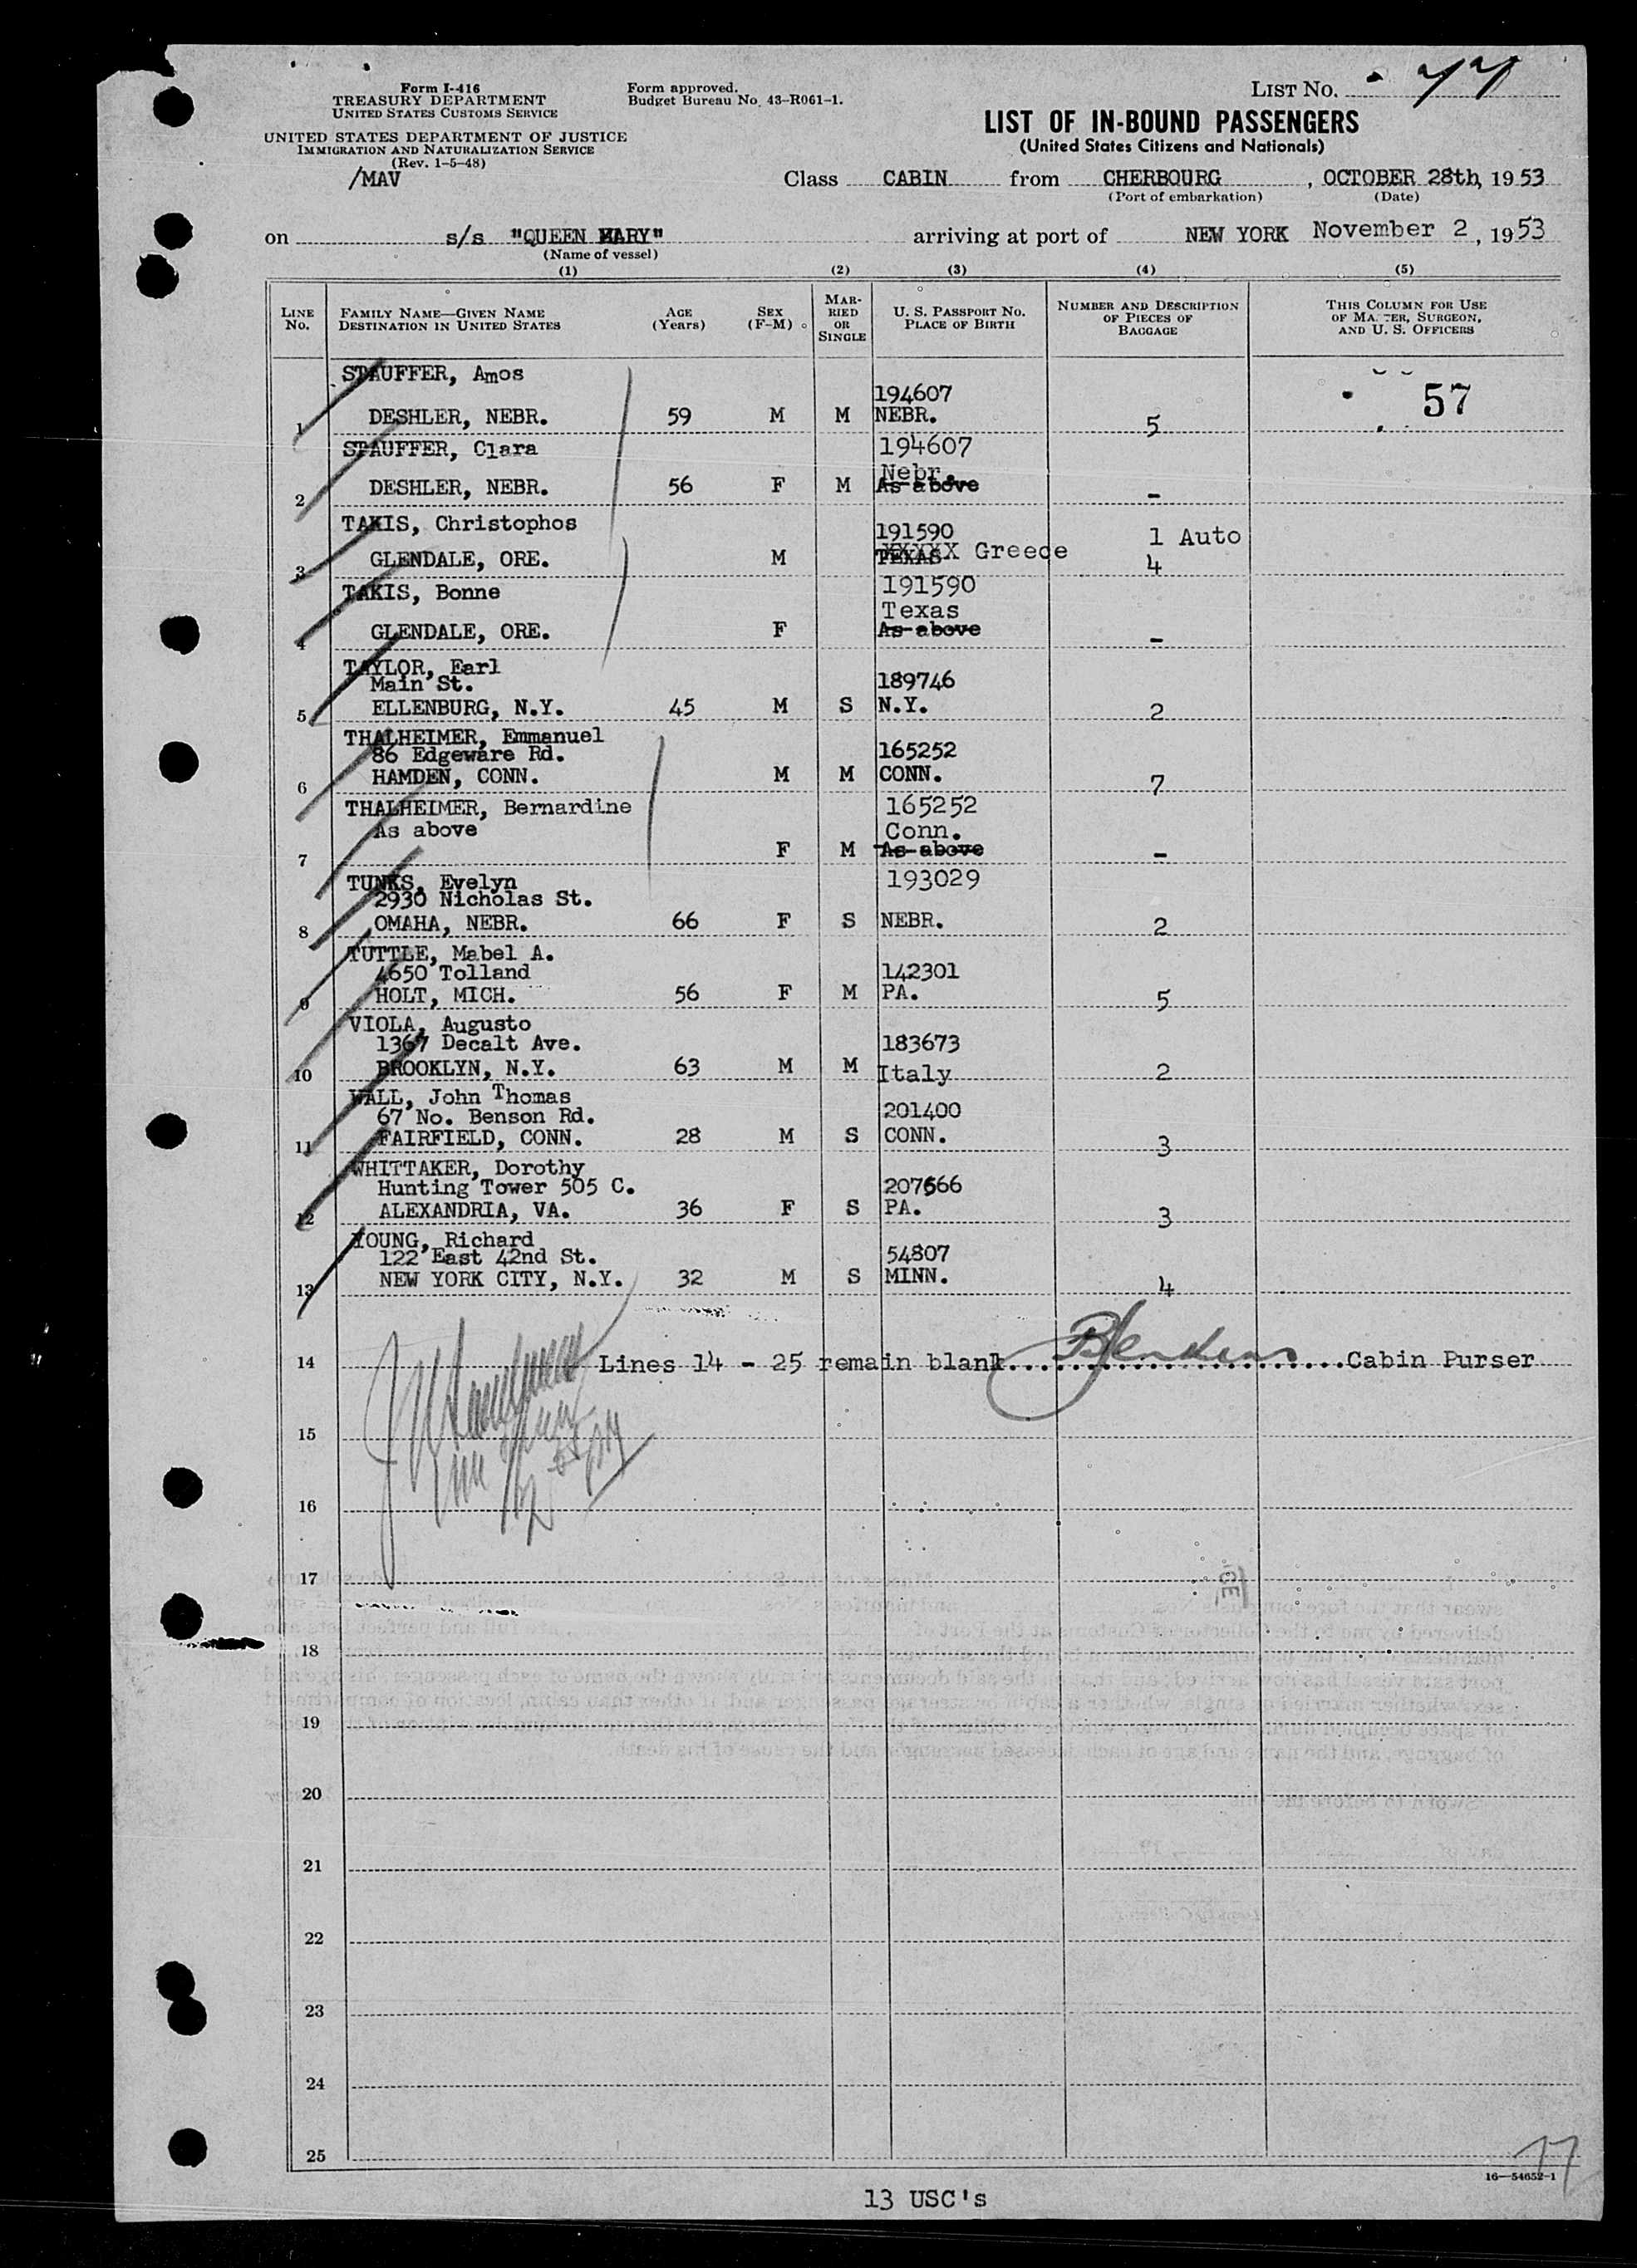 Form I-416
TREASURY DEPARTMENT
UNITED STATES CUSTOMS SERVICE
UNITED STATES DEPARTMENT OF JUSTICE
IMMIGRATION AND NATURALIZATION SERVICE
(Rev. 1-5-48)
/MAV
Form approved.
Budget Bureau No. 43-R061-1.
LIST NO.
LIST OF IN-BOUND PASSENGERS
(United States Citizens and Nationals)
Class CABIN from CHERBOURG, OCTOBER 28th, 1953
(Port of embarkation) (Date)
on s/s "QUEEN MARY" arriving at port of NEW YORK November 2, 1953
(Name of vessel)
(1) (2) (3) (4) (5)
LINE No. FAMILY NAME—GIVEN NAME DESTINATION IN UNITED STATES AGE (Years) SEX (F-M) MARRIED OR SINGLE U. S. PASSPORT NO. PLACE OF BIRTH NUMBER AND DESCRIPTION OF PIECES OF BAGGAGE THIS COLUMN FOR USE OF MASTER, SURGEON, AND U. S. OFFICERS
STAUFFER, Amos
194607 57
1 DESHLER, NEBR. 59 M M NEBR. 5
STAUFFER, Clara 194607
Nebr.
2 DESHLER, NEBR. 56 F M As above -
TAKIS, Christophos 191590 1 Auto
XXXXX Greece
3 GLENDALE, ORE. M TEXAS 4
TAKIS, Bonne 191590
Texas
4 GLENDALE, ORE. F As above -
TAYLOR, Earl
Main St. 189746
5 ELLENBURG, N.Y. 45 M S N.Y. 2
THALHEIMER, Emmanuel
86 Edgeware Rd. 165252
6 HAMDEN, CONN. M M CONN. 7
THALHEIMER, Bernardine 165252
As above Conn.
7 F M As above -
TUNKS, Evelyn 193029
2930 Nicholas St.
8 OMAHA, NEBR. 66 F S NEBR. 2
TUTTLE, Mabel A.
4650 Tolland 142301
9 HOLT, MICH. 56 F M PA. 5
VIOLA, Augusto
1367 Decalt Ave. 183673
10 BROOKLYN, N.Y. 63 M M Italy 2
WALL, John Thomas
67 No. Benson Rd. 201400
11 FAIRFIELD, CONN. 28 M S CONN. 3
WHITTAKER, Dorothy
Hunting Tower 505 C. 207666
12 ALEXANDRIA, VA. 36 F S PA. 3
YOUNG, Richard
122 East 42nd St. 54807
13 NEW YORK CITY, N.Y. 32 M S MINN. 4
14 Lines 14 - 25 remain blank. Cabin Purser
15
16
17
18
19
20
21
22
23
24
25
17
16—54652-1
13 USC's